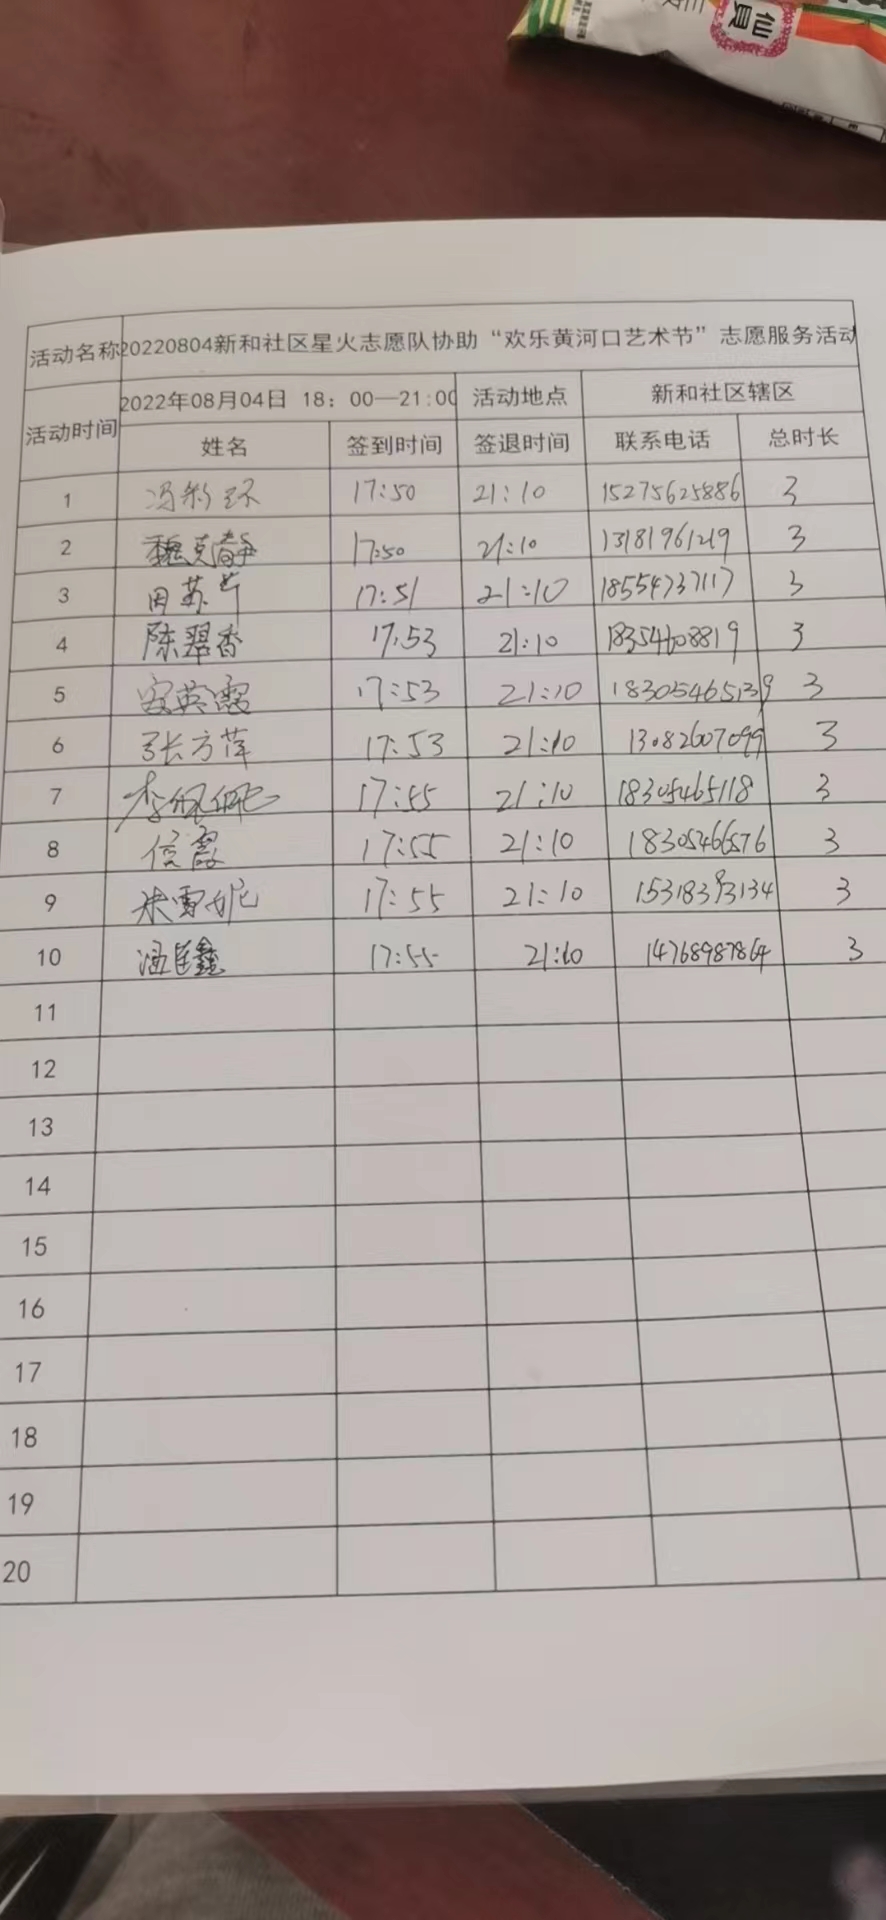 仙贝
活动名称 20220804新和社区星火志愿队协助“欢乐黄河口艺术节”志愿服务活动
活动时间 2022年08月04日 18：00—21:00 活动地点 新和社区辖区
姓名 签到时间 签退时间 联系电话 总时长
1 冯彩环 17:50 21:10 15275625886 3
2 魏克静 17:50 21:10 13181961219 3
3 田苏芹 17:51 21:10 18554737117 3
4 陈翠香 17:53 21:10 18354608819 3
5 英霞 17:53 21:10 18305465139 3
6 张方萍 17:53 21:10 13082607099 3
7 李 17:55 21:10 18305465118 3
8 信霞 17:55 21:10 18305466576 3
9 朱雪妮 17:55 21:10 15318393134 3
10 鑫 17:55 21:10 14768987864 3
11
12
13
14
15
16
17
18
19
20